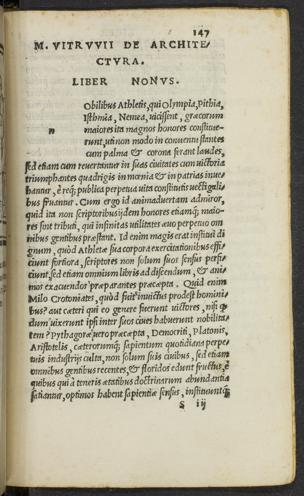 147
M. VITRVVII DE ARCHITE/
CTVRA.
LIBER NONVS.
Obilibus Athletis, qui Olympia, Pithia,
Isthmia, Nemea, uicissent, græcorum
n maiores ita magnos honores constitue-
runt, uti non modo in conuentu stantes
cum palma & corona ferant laudes,
sed etiam cum reuertantur in suas ciuitates cum uictoria
triumphantes quadrigis in mœnia & in patrias inue/
hantur, è req; publica perpetua uita constitutis uectigali/
bus fruantur. Cum ergo id animaduertam admiror,
quid ita non scriptoribus ijdem honores etiamq; maio/
res sint tributi, qui infinitas utilitates æuo perpetuo om
nibus gentibus præstant. Id enim magis erat institui di
gnum, quòd Athletæ sua corpora exercitationibus effi/
ciunt fortiora, scriptores non solum suos sensus perfi/
ciunt, sed etiam omnium libris ad discendum, & ani/
mos exacuendos præparantes præcepta. Quid enim
Milo Crotoniates, quòd fuit inuictus prodest homini/
bus? aut cæteri qui eo genere fuerunt uictores, nisi q
dum uixerunt ipsi inter suos ciues habuerunt nobilita/
tem? Pythagoræ uero præcepta, Democriti, Platonis,
Aristotelis, cæterorumq; sapientum quotidiana perpe/
tuis industrijs culta, non solum suis ciuibus, sed etiam
omnibus gentibus recentes, & floridos edunt fructus, è
quibus qui à teneris ætatibus doctrinarum abundantia
satiantur, optimos habent sapientiæ sensus, instituuntq;
S iij